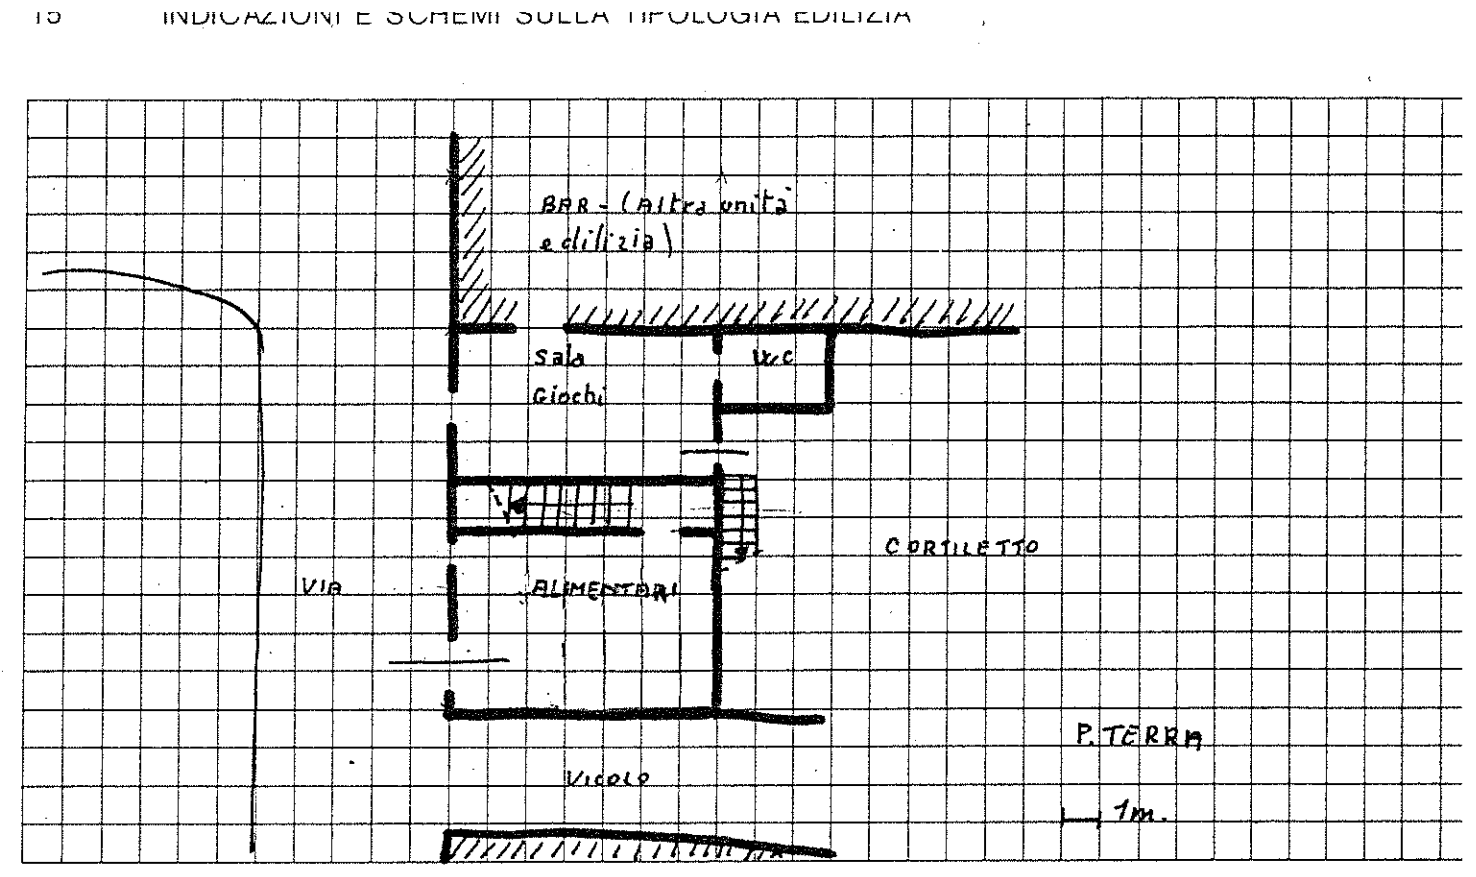 15 INDICAZIONI E SCHEMI SULLA TIPOLOGIA EDILIZIA
BAR - (Altra unità
edilizia)
Sala
Giochi
W.C
CORTILETTO
VIA
ALIMENTARI
P. TERRA
VICOLO
1m.